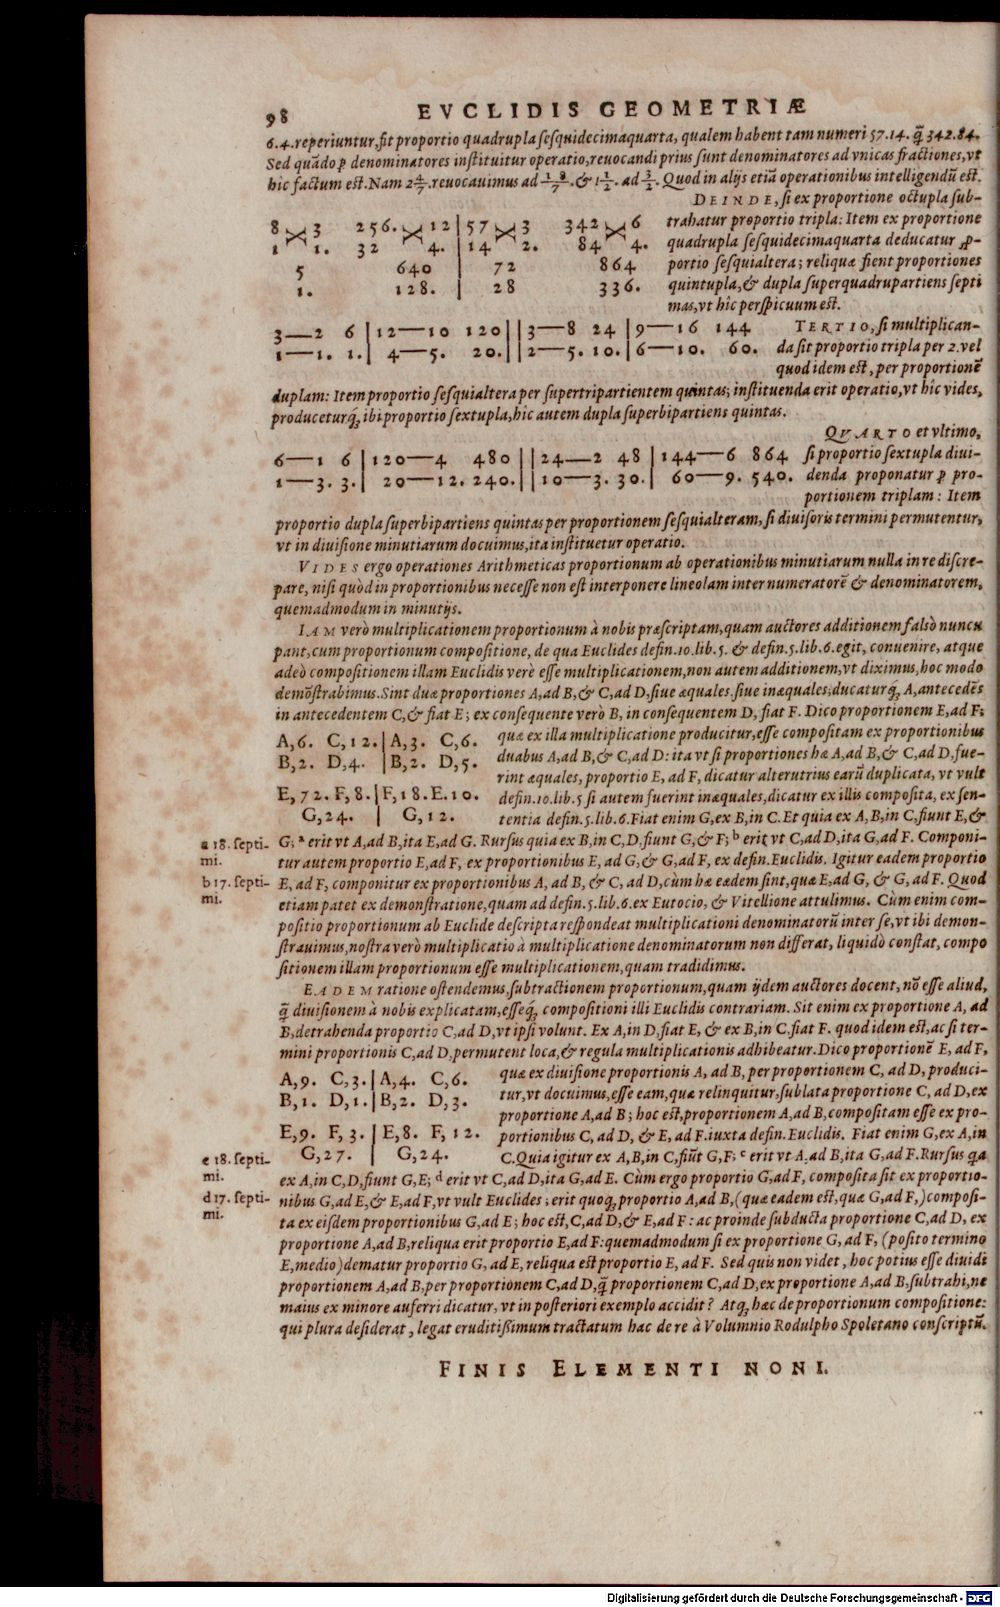 98 EVCLIDIS GEOMETRIÆ
6.4. reperiuntur, fit proportio quadrupla sesquidecimaquarta, qualem habent tam numeri 57.14. q̃ 342.84.
Sed quãdo ꝑ denominatores instituitur operatio, reuocandi prius sunt denominatores ad vnicas fractiones, vt
hic factum est. Nam 2 4/7. reuocauimus ad 18/7. & 1 1/2. ad 3/2. Quod in alijs etiã operationibus intelligendũ est.
DEINDE, si ex proportione octupla sub-
8 3 256. 12 | 57 3 342 6 trahatur proportio tripla: Item ex proportione
1 1. 32 4. | 14 2. 84 4. quadrupla sesquidecimaquarta deducatur ꝓ-
5 640 | 72 864 portio sesquialtera; reliquæ fient proportiones
1. 128. | 28 336. quintupla, & dupla superquadrupartiens septi
mas, vt hîc perspicuum est.
3—2 6 | 12—10 120 || 3—8 24 | 9—16 144 TERTIO, si multiplican-
1—1. 1. | 4—5. 20. || 2—5. 10. | 6—10. 60. da sit proportio tripla per 2. vel
quod idem est, per proportionẽ
duplam: Item proportio sesquialtera per supertripartientem quintas; instituenda erit operatio, vt hîc vides,
produceturq́; ibi proportio sextupla, hic autem dupla superbipartiens quintas.
QVARTO et vltimo,
6—1 6 | 120—4 480 || 24—2 48 | 144—6 864 si proportio sextupla diui-
1—3. 3. | 20—12. 240. || 10—3. 30. | 60—9. 540. denda proponatur ꝑ pro-
portionem triplam: Item
proportio dupla superbipartiens quintas per proportionem sesquialteram, si diuisoris termini permutentur,
vt in diuisione minutiarum docuimus, ita instituetur operatio.
VIDES ergo operationes Arithmeticas proportionum ab operationibus minutiarum nulla in re discre-
pare, nisi quòd in proportionibus necesse non est interponere lineolam inter numeratorẽ & denominatorem,
quemadmodum in minutijs.
IAM verò multiplicationem proportionum à nobis præscriptam, quam auctores additionem falsò nuncu
pant, cum proportionum compositione, de qua Euclides defin. 10. lib. 5. & defin. 5. lib. 6. egit, conuenire, atque
adeò compositionem illam Euclidis verè esse multiplicationem, non autem additionem, vt diximus, hoc modo
demõstrabimus. Sint duæ proportiones A, ad B, & C, ad D, siue æquales, siue inæquales; ducaturq́; A, antecedẽs
in antecedentem C, & fiat E; ex consequente verò B, in consequentem D, fiat F. Dico proportionem E, ad F;
A, 6. C, 12. | A, 3. C, 6. quæ ex illa multiplicatione producitur, esse compositam ex proportionibus
B, 2. D, 4. | B, 2. D, 5. duabus A, ad B, & C, ad D: ita vt si proportiones hæ A, ad B, & C, ad D, fue-
rint æquales, proportio E, ad F, dicatur alterutrius earũ duplicata, vt vult
E, 72. F, 8. | F, 18. E. 10. defin. 10. lib. 5 si autem fuerint inæquales, dicatur ex illis composita, ex sen-
G, 24. | G, 12. tentia defin. 5. lib. 6. Fiat enim G, ex B, in C. Et quia ex A, B, in C, fiunt E, &
a 18. septi- G; ᵃ erit vt A, ad B, ita E, ad G. Rursus quia ex B, in C, D, fiunt G, & F; ᵇ erit vt C, ad D, ita G, ad F. Componi-
mi. tur autem proportio E, ad F, ex proportionibus E, ad G, & G, ad F, ex defin. Euclidis. Igitur eadem proportio
b 17. septi- E, ad F, componitur ex proportionibus A, ad B, & C, ad D, cùm hæ eædem sint, quæ E, ad G, & G, ad F. Quod
mi. etiam patet ex demonstratione, quam ad defin. 5. lib. 6. ex Eutocio, & Vitellione attulimus. Cùm enim com-
positio proportionum ab Euclide descripta respondeat multiplicationi denominatorũ inter se, vt ibi demon-
strauimus, nostra verò multiplicatio à multiplicatione denominatorum non differat, liquidò constat, compo
sitionem illam proportionum esse multiplicationem, quam tradidimus.
EADEM ratione ostendemus, subtractionem proportionum, quam ijdem auctores docent, nõ esse aliud,
q̃ diuisionem à nobis explicatam, esseq́; compositioni illi Euclidis contrariam. Sit enim ex proportione A, ad
B, detrahenda proportio C, ad D, vt ipsi volunt. Ex A, in D, fiat E, & ex B, in C, fiat F. quod idem est, ac si ter-
mini proportionis C, ad D, permutent loca, & regula multiplicationis adhibeatur. Dico proportionẽ E, ad F,
A, 9. C, 3. | A, 4. C, 6. quæ ex diuisione proportionis A, ad B, per proportionem C, ad D, produci-
B, 1. D, 1. | B, 2. D, 3. tur, vt docuimus, esse eam, quæ relinquitur, sublata proportione C, ad D, ex
proportione A, ad B; hoc est, proportionem A, ad B, compositam esse ex pro-
E, 9. F, 3. | E, 8. F, 12. portionibus C, ad D, & E, ad F. iuxta defin. Euclidis. Fiat enim G, ex A, in
c 18. septi- G, 27. | G, 24. C. Quia igitur ex A, B, in C, fiũt G, F; ᶜ erit vt A, ad B, ita G, ad F. Rursus qa
mi. ex A, in C, D, fiunt G, E; ᵈ erit vt C, ad D, ita G, ad E. Cùm ergo proportio G, ad F, composita sit ex proportio-
d 17. septi- nibus G, ad E, & E, ad F, vt vult Euclides; erit quoq; proportio A, ad B, (quæ eadem est, quæ G, ad F,) composi-
mi. ta ex eisdem proportionibus G, ad E; hoc est, C, ad D, & E, ad F: ac proinde subducta proportione C, ad D, ex
proportione A, ad B, reliqua erit proportio E, ad F: quemadmodum si ex proportione G, ad F, (posito termino
E, medio) dematur proportio G, ad E, reliqua est proportio E, ad F. Sed quis non videt, hoc potius esse diuidi
proportionem A, ad B, per proportionem C, ad D, q̃ proportionem C, ad D, ex proportione A, ad B, subtrahi, ne
maius ex minore auferri dicatur, vt in posteriori exemplo accidit? Atq; hæc de proportionum compositione:
qui plura desiderat, legat eruditißimum tractatum hac de re à Volumnio Rodulpho Spoletano conscriptũ.
FINIS ELEMENTI NONI.
Digitalisierung gefördert durch die Deutsche Forschungsgemeinschaft - DFG